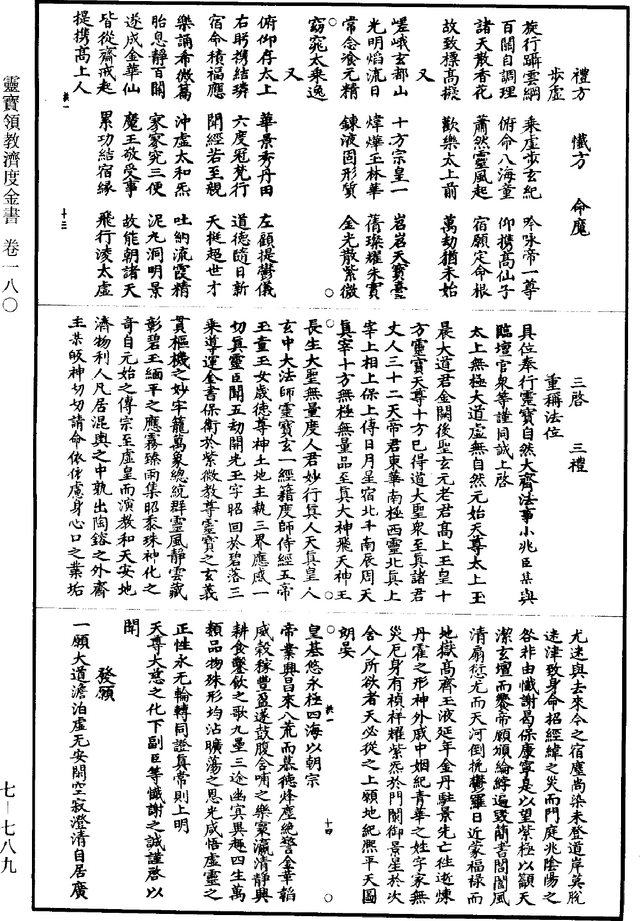 禮方 懺方 命魔
步虛
旋行躡雲綱 乘虛步玄紀 吟咏帝一尊
百關自調理 俯命八海童 仰携高仙子
諸天散香花 蕭然靈風起 宿願定命根
故致標高擬 歡樂太上前 萬劫猶未始
又
嵯峨玄都山 十方宗皇一 岧岧天寶臺
光明焰流日 煒煒玉林華 蒨璨耀朱實
常念飡元精 鍊液固形質 金光散紫微
窈窕太乘逸
又
俯仰存太上 華景秀丹田 左顧提鬱儀
右眄携結璘 六度冠梵行 道德隨日新
宿命積福應 聞經若至親 天挺超世才
樂誦希微篇 沖虛太和炁 吐納流霞精
胎息靜百關 寥寥究三便 泥丸洞明景
遂成金華仙 魔王敬受事 故能朝諸天
皆從齋戒起 累功結宿緣 飛行淩太虛
提携高上人
共一 十三
三啓 三禮
重稱法位
具位奉行靈寶自然大齋法事小兆臣某與
臨壇官衆等謹同誠上啓
太上無極大道虛無自然元始天尊太上玉
晨大道君金闕後聖玄元老君高上玉皇十
方靈寶天尊十方已得道大聖衆至真諸君
丈人三十二天帝君東華南極西靈北真上
宰上相上保上傅日月星宿北斗南辰周天
真宰十方無極無量品至真大神飛天神王
長生大聖無量度人君妙行真人天真皇人
玄中大法師靈寶玄一經籍度師侍經五帝
玉童玉女歲德尊神土地主執三界應感一
切真靈臣聞五劫開光玉字昭回於碧落三
乘導運金書保衛於紫微教尊靈寶之玄義
貫樞機之妙牢籠萬象總統群靈風靜雲藏
彰碧玉緬平之應霧臻雨集昭黍珠神化之
奇自元始之傳宗至虛皇而演教和天安地
濟物利人凡居混輿之中孰出陶鎔之外齋
主某皎神切切請命依依慮身心口之業垢
尤迷與去來今之宿塵尚染未登道岸莫脫
迷津致身命招經緯之災而門庭兆陰陽之
咎非由懺謝曷保康寧是以望紫極以籲天
潔玄壇而饗帝願頒綸綍遍毀簡書閶闔風
清扇愆尤而天河倒抗鬱羅日近蒙福祿而
地獄高齊玉液延年金丹駐景先亡徃逝煉
丹霍之形神外戚中姻紀青華之姓字家無
災厄身有禎祥耀紫炁於門闌御景星於次
舍人所欲者天必從之上願地紀熙平天圖
朗晏
共一 十四
皇基悠永極四海以朝宗
帝業興昌來八荒而慕德烽塵絕警金革韜
威穀稼豐盈遂鼓腹含哺之樂寰瀛清靜興
耕食鑿飲之歌九壘三途幽冥異趣四生萬
類品物殊形均沾曠蕩之恩光咸悟虛靈之
正性永无輪轉同證真常則上明
天尊大慈之化下副臣等懺謝之誠謹啓以
聞
發願
一願大道澹泊虛无安閑空寂澄清自居廣
靈寶領教濟度金書 卷一八〇
七—七八九